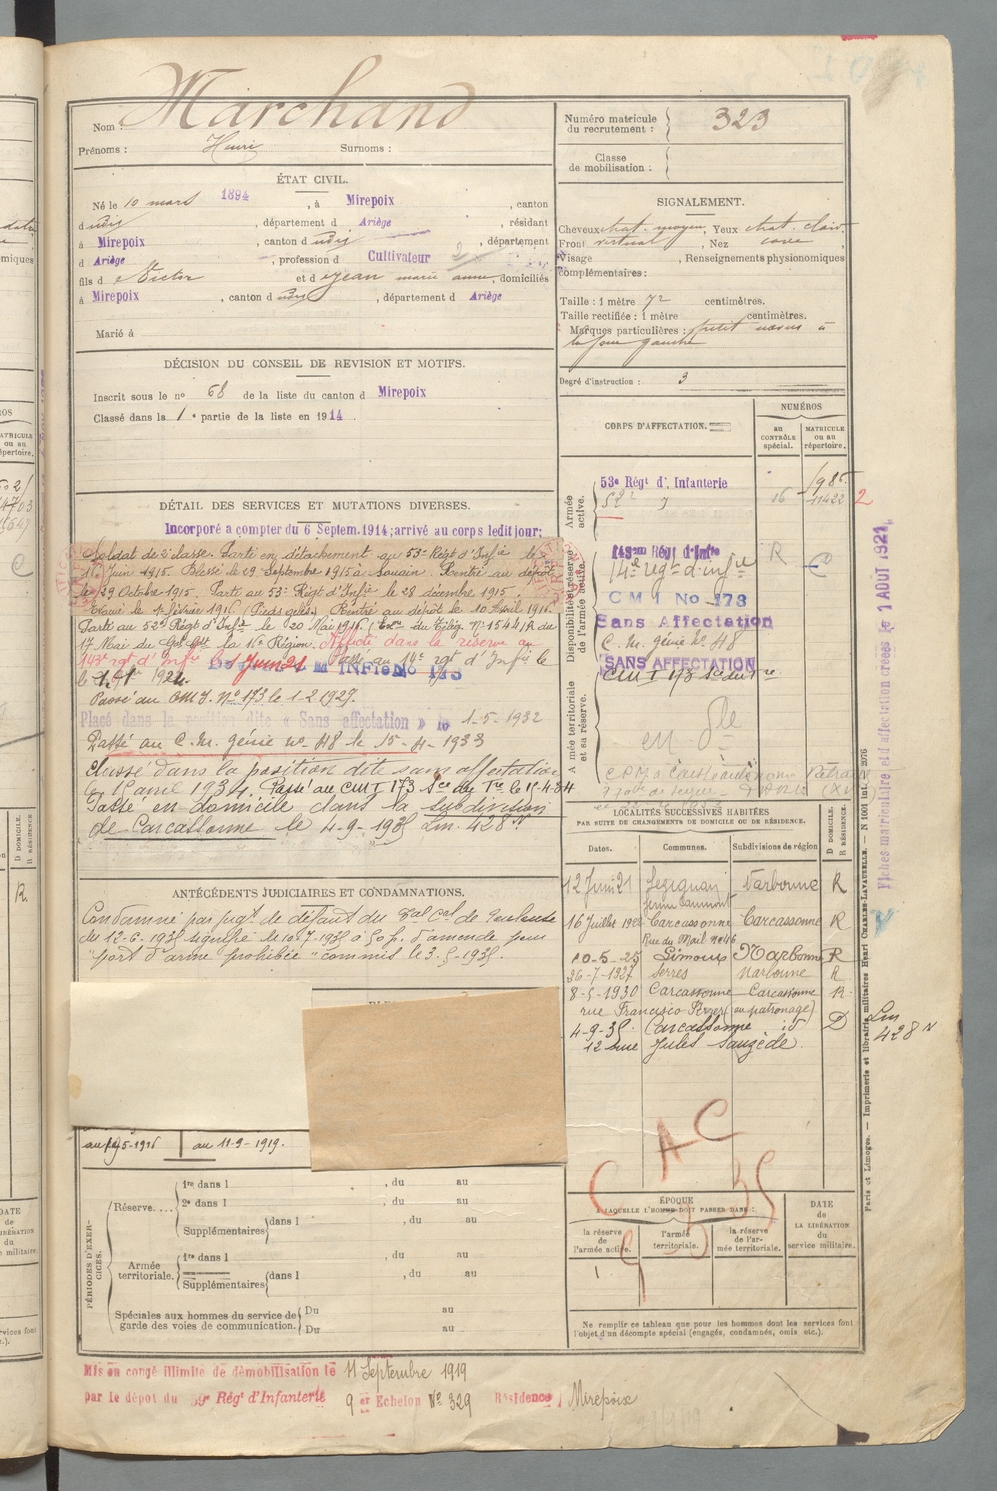 Nom : Marchand
Prénoms : Henri Surnoms :
Numéro matricule du recrutement : 323
Classe de mobilisation :
ÉTAT CIVIL.
Né le 10 mars 1894, à Mirepoix, canton
dudit, département d Ariège, résidant
à Mirepoix, canton dudit, département
d Ariège, profession d Cultivateur
fils d Victor et d Jean marie anne, domiciliés
à Mirepoix, canton dudit, département d Ariège
Marié à
SIGNALEMENT.
Cheveux chat. moyen, Yeux chat. clair,
Front vertical, Nez cave,
Visage , Renseignements physionomiques
complémentaires :
Taille : 1 mètre 72 centimètres.
Taille rectifiée : 1 mètre centimètres.
Marques particulières : petit nævus à
la joue gauche
Degré d'instruction : 3
DÉCISION DU CONSEIL DE REVISION ET MOTIFS.
Inscrit sous le no 68 de la liste du canton d Mirepoix
Classé dans la 1e partie de la liste en 1914
DÉTAIL DES SERVICES ET MUTATIONS DIVERSES.
Incorporé a compter du 6 Septem. 1914; arrivé au corps ledit jour;
Soldat de 2e classe. Parti en détachement au 53e Régt d'Infie le
11 Juin 1915. Blessé le 29 Septembre 1915 à Souain. Rentré au dépôt
le 29 Octobre 1915. Parti au 53e Régt d'Infie le 28 décembre 1915.
Evacué le 1er février 1916 (Pieds gelés). Rentré au dépôt le 10 Avril 1916.
Parti au 52e Régt d'Infie le 20 Mai 1916 (Exon du Télég. No 1544/R du
17 Mai du Gal Cdt la 17e Région. Affecté dans la réserve au
143e rgt d'Infie le 1 Juin 21 Passé au 14e rgt d'Infie le
Passé au CMI. No 173 le 1-2-1927.
Placé dans la position dite « Sans affectation » le 1-5-1932
Passé au C. M. génie no 48 le 15-4-1933
Classé dans la position dite sans affectation
le 15 avril 1934. Passé au CMI 173 Son du Tre le 15-4-34
Passé en domicile dans la subdivision
de Carcassonne le 4-9-1935 Lm. 428 N.
CORPS D'AFFECTATION.
NUMÉROS
au CONTRÔLE spécial.
MATRICULE ou au répertoire.
Armée active.
53e Régt d'Infanterie 1985
52e » 16 11422 2
Disponibilité et réserve de l'armée active.
143em Régt d'Infie R
14e régt d'infie
C M I No 173
Sans Affectation
C. M. génie No 48
SANS AFFECTATION
CMI 173 Son du Tre
Armée territoriale et sa réserve.
LOCALITÉS SUCCESSIVES HABITÉES
PAR SUITE DE CHANGEMENTS DE DOMICILE OU DE RÉSIDENCE.
Dates. Communes. Subdivisions de région D DOMICILE. R RÉSIDENCE
12 Juin 21 Lezignan Narbonne R
16 Juillet Carcassonne Carcassonne R
Rue du Mail No 46
10-5-25 Limoux Narbonne R
26-7-1927 Serres Narbonne R
8-5-1930 Carcassonne Carcassonne R
rue Francisco Ferrer (au patronage)
4-9-35 Carcassonne id D
12 rue Jules Sauzède.
Lm 428 N
ANTÉCÉDENTS JUDICIAIRES ET CONDAMNATIONS.
Condamné par jugt de défaut du Bal Cel de Toulouse
du 12-6-1935 signifié le 10-7-1935 à 50 f. d'amende pour
"port d'arme prohibée" commis le 3-5-1935.
au 11-9-1919.
PÉRIODES D'EXERCICES.
Réserve....
1re dans l , du au
2e dans l , du au
Supplémentaires dans l , du au
Armée territoriale.
1re dans l , du au
Supplémentaires dans l , du au
Spéciales aux hommes du service de garde des voies de communication.
Du au
Du au
C A C
35
ÉPOQUE
A LAQUELLE L'HOMME DOIT PASSER DANS :
la réserve de l'armée active.
l'armée territoriale.
la réserve de l'armée territoriale.
DATE de LA LIBÉRATION du service militaire.
Ne remplir ce tableau que pour les hommes dont les services font
l'objet d'un décompte spécial (engagés, condamnés, omis etc.).
Mis en congé illimité de démobilisation le 11 Septembre 1919
par le dépôt du 59e Régt d'Infanterie 9 er Echelon No 329 Résidence Mirepoix
Fiches matriculaire et d'affectation créées le 1 AOUT 1921
Paris et Limoges. — Imprimerie et librairie militaires Henri CHARLES-LAVAUZELLE. — N 1001 Int. 2076